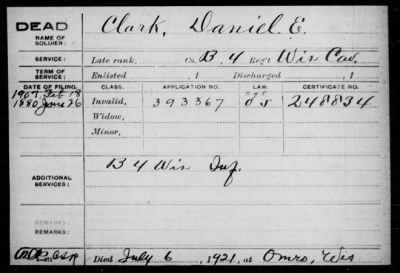 DEAD
NAME OF SOLDIER:
Clark, Daniel E.
SERVICE:
Late rank, Co. B, 4 Reg't Wis Cav.
TERM OF SERVICE:
Enlisted , 1 Discharged , 1
DATE OF FILING. CLASS. APPLICATION NO. LAW. CERTIFICATE NO.
1907 Feb 18
1880 June 26 Invalid, 393367 248834
Widow,
Minor,
ADDITIONAL SERVICES:
B 4 Wis Inf.
REMARKS:
REMARKS:
Died July 6, 1921, at Omro, Wis